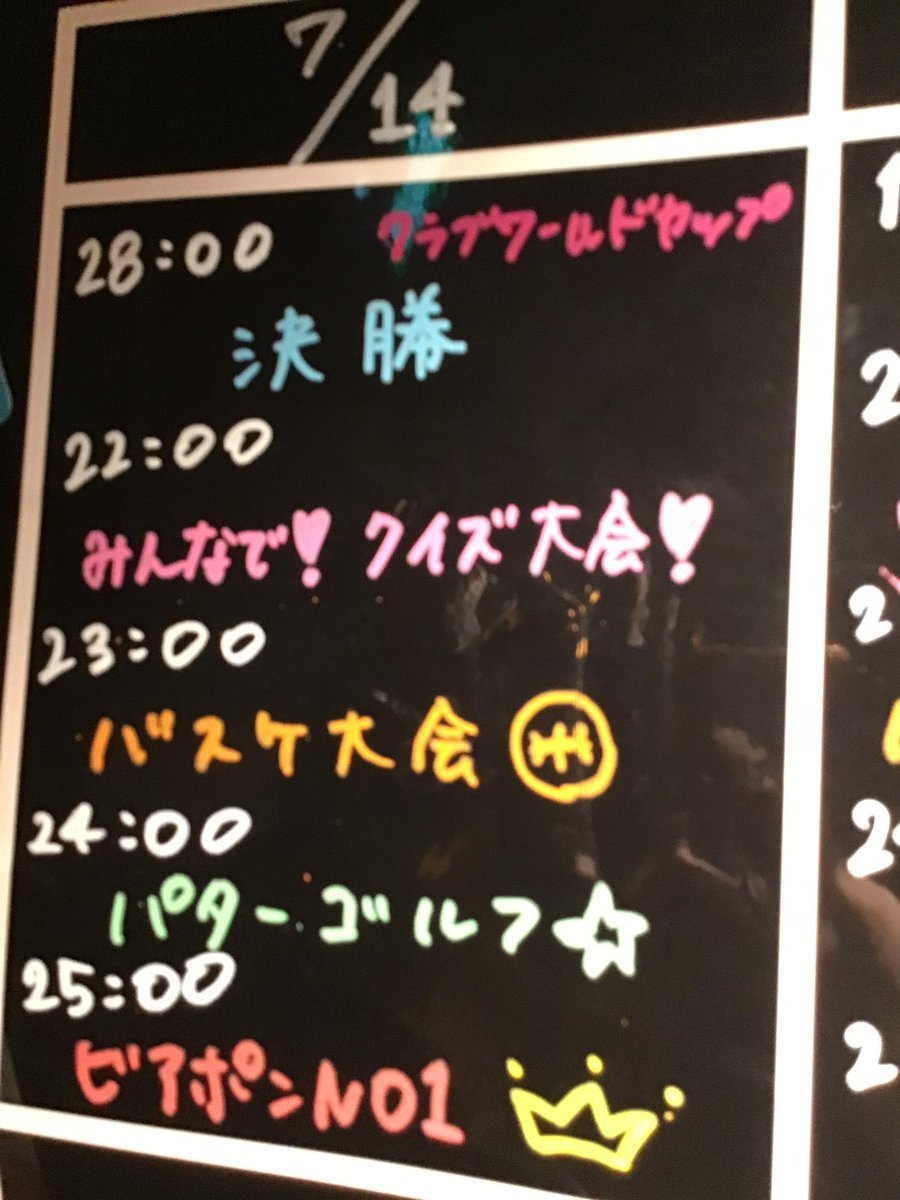 7/14
28:00 クラブワールドカップ
決勝
22:00
みんなで! クイズ大会!
23:00
バスケ大会
24:00
パターゴルフ☆
25:00
ビアポンNO1